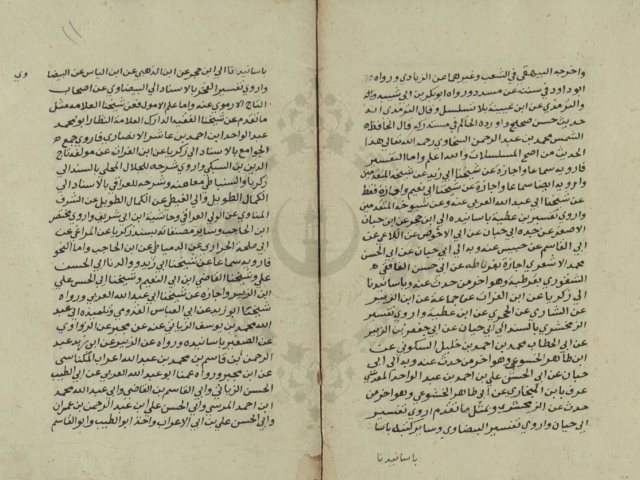 واخرجه البيهقي في الشعب وغيرهما عن الزيادي ورواه
ابو داود في سننه عن مسدد ورواه ابو بكر بن ابي شيبة
والترمذي عن ابن عيينة بلا تسلسل وقال الترمذي انه
حديث حسن صحيح واورده الحاكم في مستدركه قال الحافظ
الشمس محمد بن عبد الرحمن السخاوي رحمه الله تعالى هذا
الحديث من اصح المسلسلات والله اعلم واما التفسير
فارويه سماعا واجازة عن شيخنا ابي زيد عن شيخه
وارويه ايضا سماعا واجازة عن شيخنا ابي نعيم واجازة فقط
عن شيخنا ابي عبد الله العربي عنه وعن شيوخه المتقدمين
واروي تفسير بن عطية باسانيده الى ابن حجر عن ابن حيان
الاصغر عن جده ابي حيان عن ابي الاحوص عن الكلاعي عن
ابي القاسم عن حبيس عنه وبه الى ابي حيان عن ابي الحسن
محمد الاشعري اجازة عن ابي حسن الغافقي
الشقوري بقرطبة وهو اخر من حدث عنه وباسانيدنا
الى زكريا عن ابن الفرات عن جماعة عن ابن الزبير
عن الشاري عن الحجري عن ابن عطية واروي تفسير
الزمخشري بالسند الى ابي حيان عن ابي جعفر بن الزبير
عن ابي الخطاب محمد بن احمد بن خليل السكوني عن
ابن طاهر الخشوعي وهو اخر من حدث عنه وبه الى ابي
حيان عن ابي الحسن علي بن احمد بن عبد الواحد المقدسي
عرف بابن البخاري عن ابي طاهر الخشوعي وهو اخر من
حدث عن الزمخشري وبمثل ما تقدم اروي تفسير
ابي حيان واروي تفسير البيضاوي وساير كتبه باسا
باسانيدنا
باسانيدنا الى ابن حجر عن ابن الذهبي عن ابن الياس عن البيضاوي
واروي تفسير الفخر بالاسناد الى البيضاوي عن اصحاب
التاج الارموي عنه واما علم الاصول فعن شيخنا العلامة مثل
ما تقدم عن شيخنا الفقيه الدراكه العلامة النظار ابو محمد
عبد الواحد ابن احمد بن عاشر الانصاري فاروي جمع
الجوامع بالاسناد الى زكريا عن ابن الفرات عن مولفه تاج
الدين بن السبكي واروي شرحه للجلال المحلي بالسند الى
زكريا والسنباطي معا عنه وشرحه للعراقي بالاسناد الى
الكمال الطويل والى القبطي عن الكمال الطويل عن الشرف
المناوي عن الولي العراقي وحاشية ابن ابي شريف واروي مختصر
ابن الحاجب وساير مصنفاته بسند زكريا عن المراغي عن
ابي محمد الحراوي عن الدمياطي عن ابن الحاجب واما النحو
فارويه سماعا عن شيخنا ابي زيد ووالدنا ابي الحسن
علي وشيخنا القاضي ابن ابي النعيم وشيخنا ابي الحسن علي
ابن الزبير واجازة عن شيخنا ابي عبد الله العربي ورواه
شيخنا ابو زيد عن ابي العباس القدومي وتلميذه ابي عبد
الله محمد بن يوسف الزياتي عنه عن مجبر عن الزواوي
عن الصغير باسانيده ورواه عن الزبير عن ابي زيد عبد
الرحمن ابن قاسم بن محمد بن عبد الله اعراب المكناسي
عن ابن مجبر ورواه عمنا ابو عبد الله العربي عن ابي الطيب
الحسن الزياتي وابي القاسم بن القاضي وابي عبد الله محمد
ابن احمد المرسي وابي الحسن علي ابن عبد الرحمن بن عمران
وابي الحسن علي بن ابي الاعراب واخذ ابو الطيب وابو القاسم